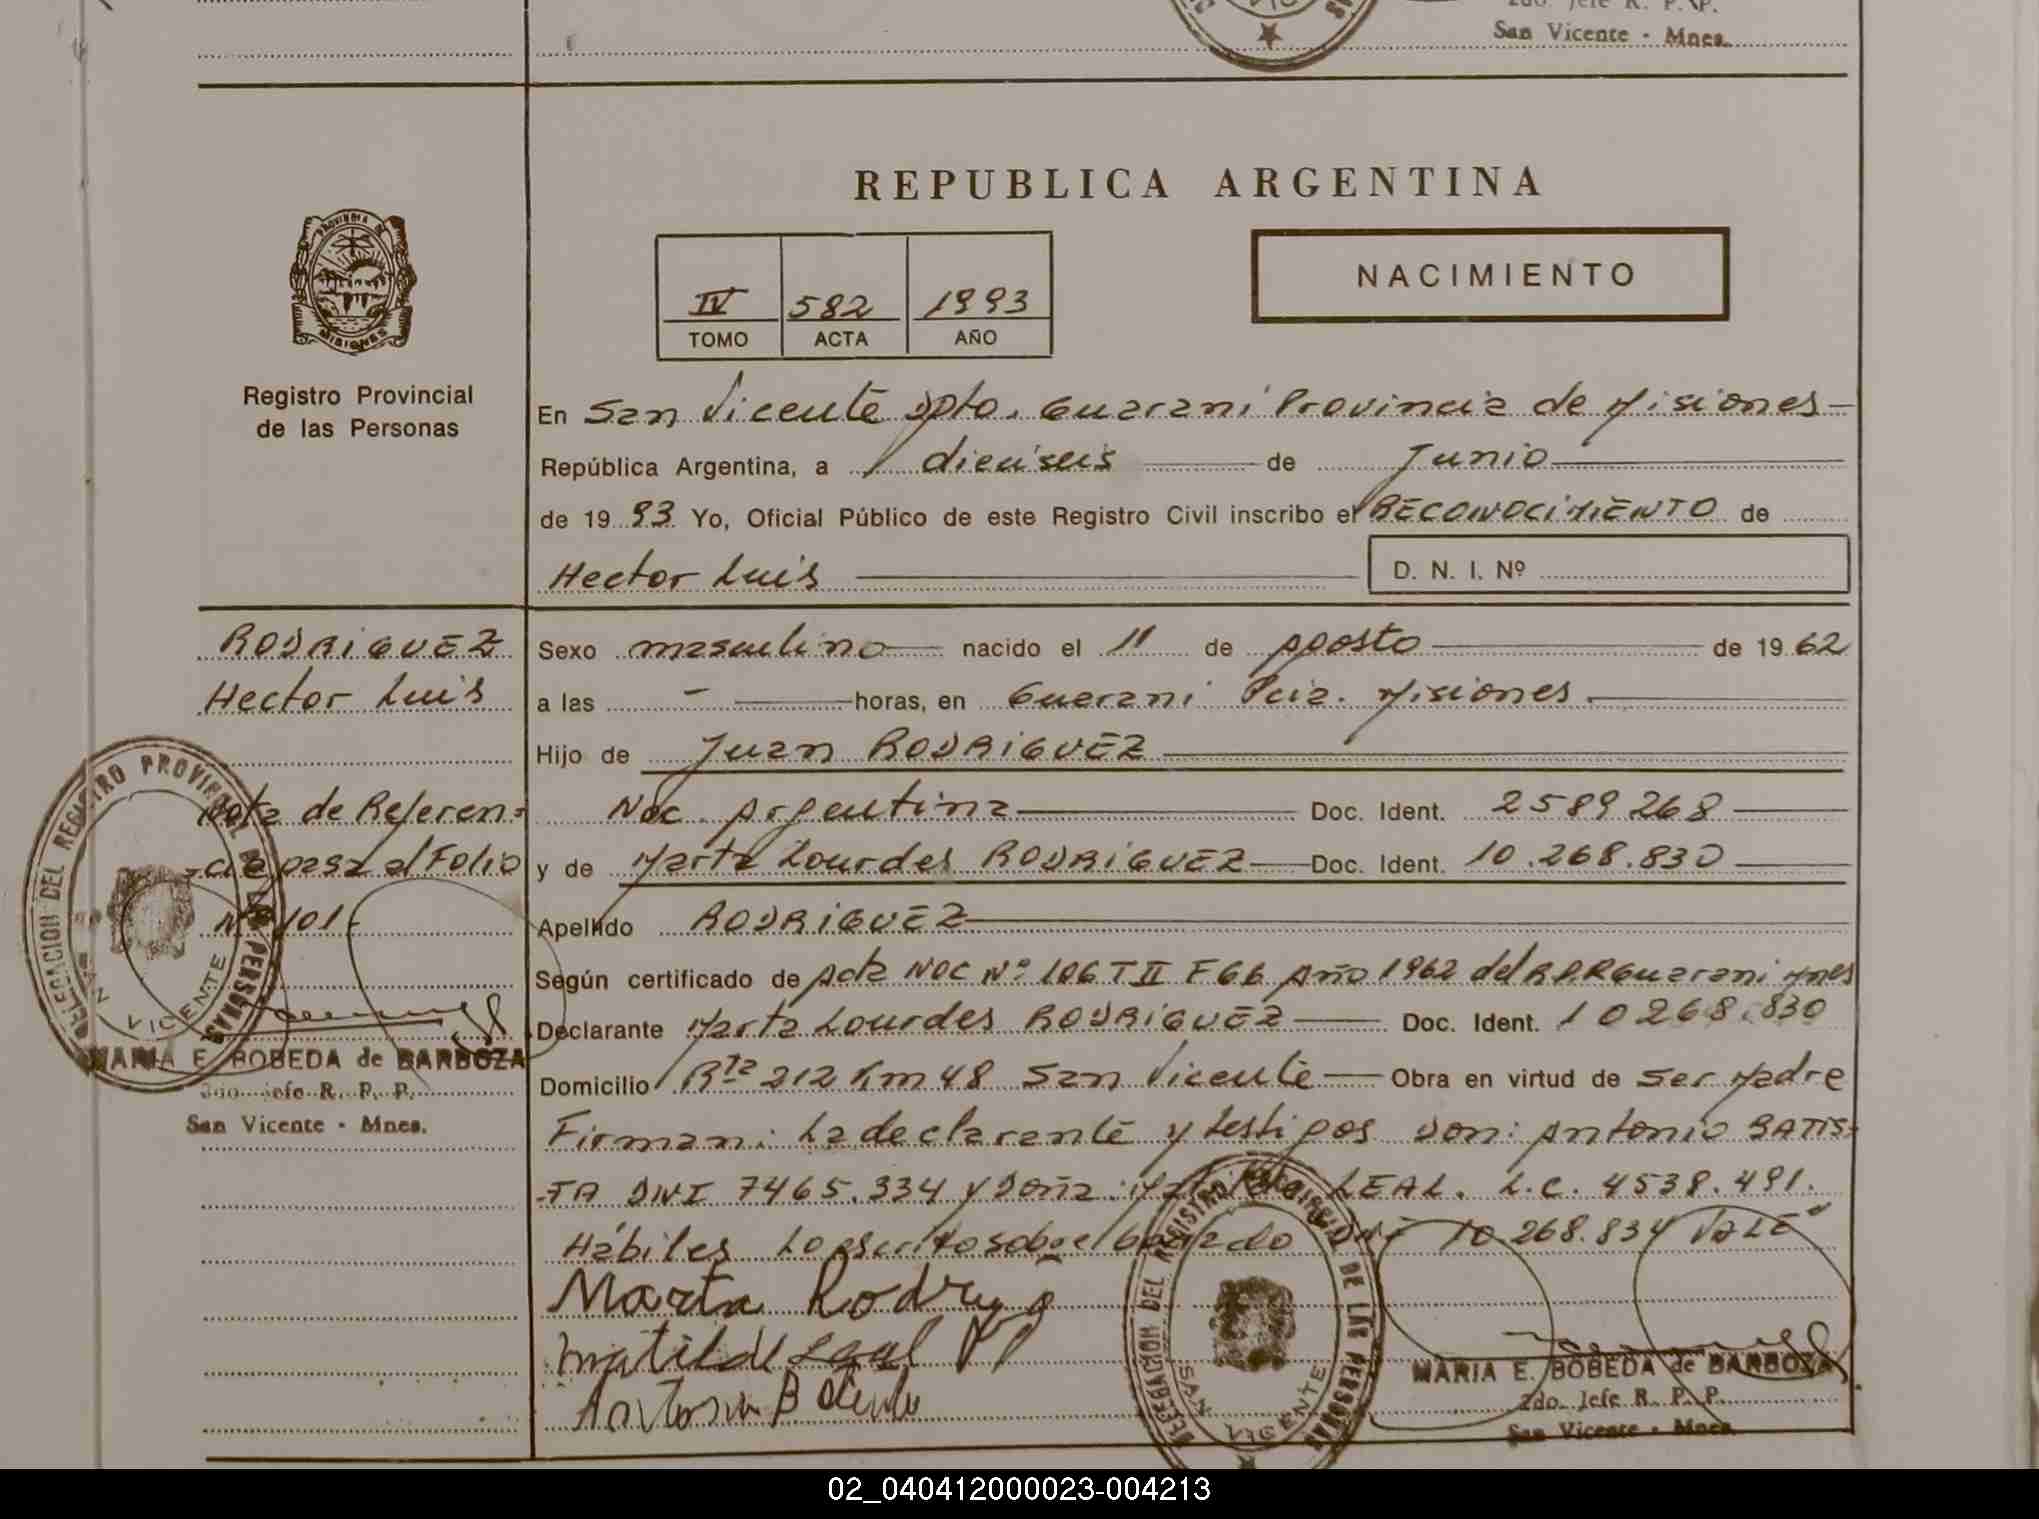 2do. Jefe R. P. P.
San Vicente - Mnes.
REPUBLICA ARGENTINA
PROVINCIA DE
MISIONES
IV 582 1993
TOMO ACTA AÑO
NACIMIENTO
Registro Provincial
de las Personas
En San Vicente Dpto. Guarani Provincia de Misiones
República Argentina, a dieciseis de Junio
de 19 93 Yo, Oficial Público de este Registro Civil inscribo el RECONOCIMIENTO de
Hector Luis D. N. I. Nº
RODRIGUEZ
Hector Luis
Nota de Referen-
-cia pasa al Folio
Nº 101-
MARIA E. BOBEDA de BARBOZA
2do. Jefe R. P. P.
San Vicente - Mnes.
DELEGACION DEL REGISTRO PROVINCIAL DE LAS PERSONAS
SAN VICENTE
Sexo masculino nacido el 11 de Agosto de 19 62
a las - horas, en Guarani Pcia. Misiones
Hijo de Juan RODRIGUEZ
Nac. Argentina Doc. Ident. 2589268
y de Marta Lourdes RODRIGUEZ Doc. Ident. 10.268.830
Apellido RODRIGUEZ
Según certificado de Acta NAC Nº 106 T II F 66 Año 1962 del R.P.P Guarani Mnes
Declarante Marta Lourdes RODRIGUEZ Doc. Ident. 10268.830
Domicilio Rta 212 Km 48 San Vicente Obra en virtud de ser Madre
Firman: La declarante y testigos Don: Antonio BATIS-
-TA DNI 7465.334 y Doña: Matilde LEAL. L.C. 4538.491.
Hábiles Lo escrito sobre borrado 10.268.834 VALE
Marta Rodrig
Matilde Leal
Antonio
DELEGACION DEL REGISTRO PROVINCIAL DE LAS PERSONAS
SAN VICENTE
MARIA E. BOBEDA de BARBOZA
2do. Jefe R. P. P.
San Vicente - Mnes.
02_040412000023-004213